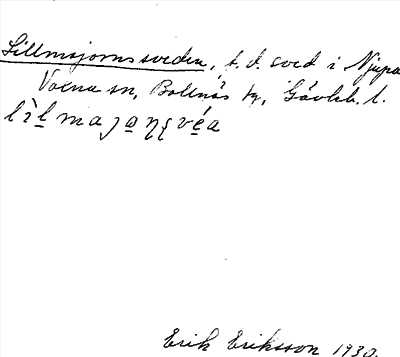 Lillmajornssveden, f. d. sved i Njupa
Voxna sn, Bollnäs tg, Gävleb. l.
lìl̲maȷa̲ŋʂve̲a
Erik Eriksson 1930.